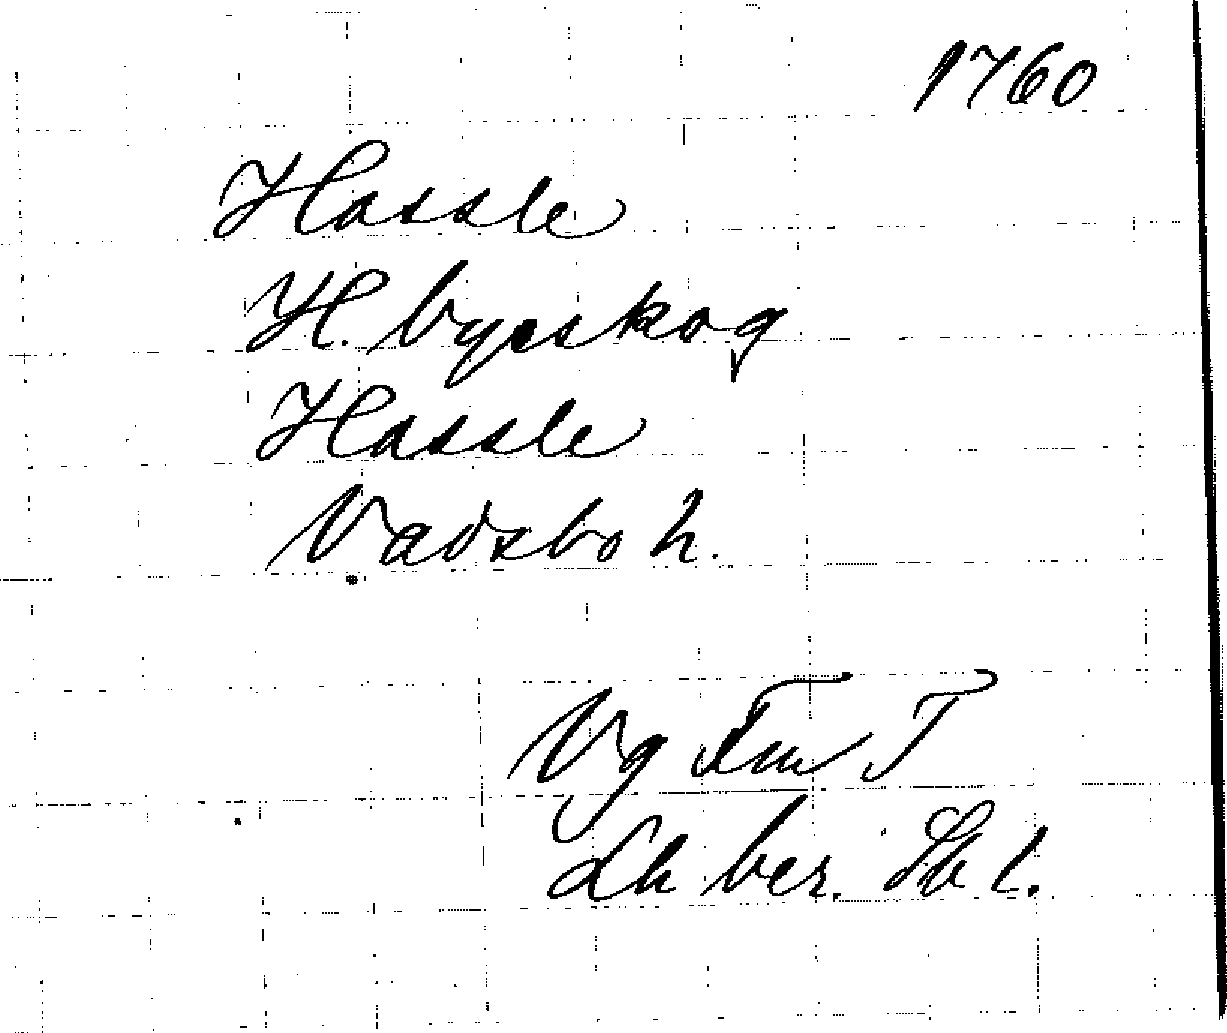 1760
Hassle
H. byaskog
Hassle
Vadsbo h.
Vg Fm T
Lh ber. Sk l.